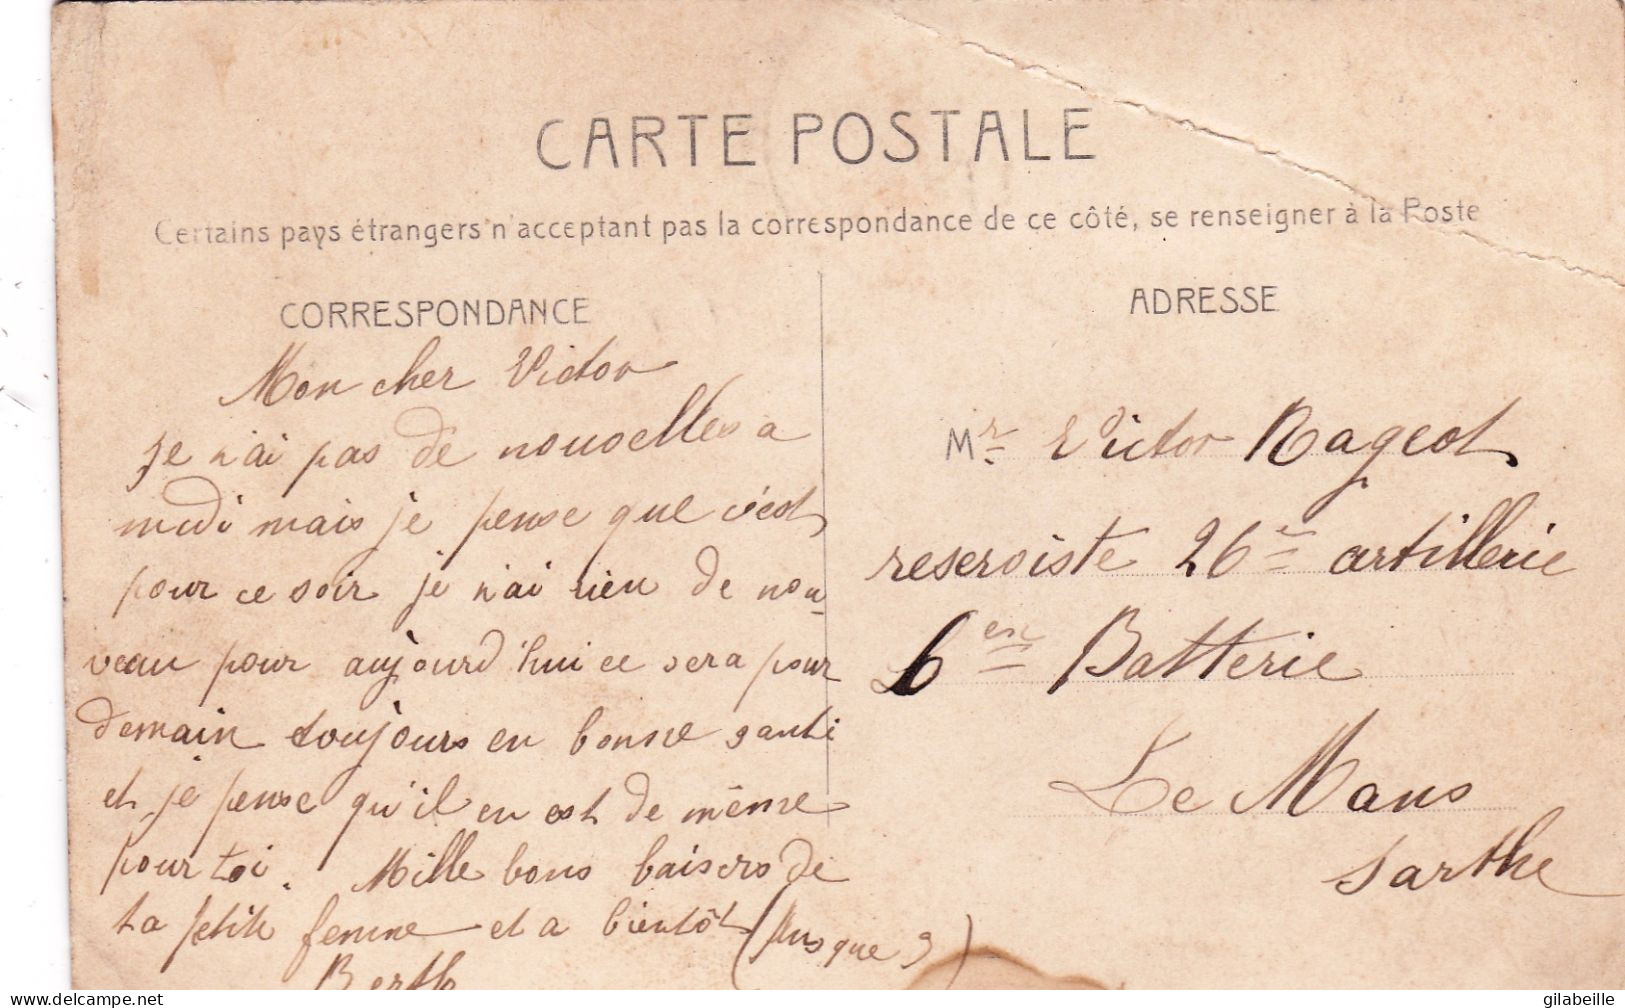 CARTE POSTALE
Certains pays étrangers n'acceptant pas la correspondance de ce côté, se renseigner à la Poste
CORRESPONDANCE
Mon cher Victor
je n'ai pas de nouvelles a
midi mais je pense que c'est
pour ce soir je n'ai rien de nou-
veau pour aujourd'hui ce sera pour
demain toujours en bonne santé
et je pense qu'il en est de même
pour toi. Mille bons baisers de
ta petite femme et a bientôt (plus que 9)
Berthe
ADRESSE
Mr Victor Rageot
reserviste 26e artillerie
6em Batterie
Le Mans
Sarthe
www.delcampe.net
gilabeille